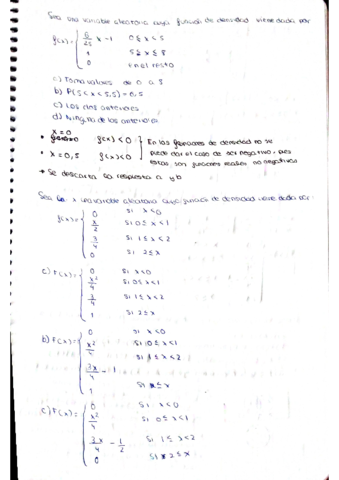 Sea una variable aleatoria cuya función de densidad viene dada por
f(x)= { 6/25 x - 1   0 ≤ x < 5
1   5 ≤ x ≤ 8
0   en el resto
a) Toma valores de 0 a 8
b) P(5<x<5,5)=0,5
c) Las dos anteriores
d) Ninguna de las anteriores
• x=0   f(x)<0 } En las funciones de densidad no se
• x=0,5   f(x)<0   puede dar el caso de ser negativo, pues
estas son funciones reales no negativas
→ Se descarta la respuesta a y b
Sea x una variable aleatoria cuya función de densidad viene dada por:
f(x)= { 0   si x<0
x/2   si 0≤x<1
3/4   si 1≤x<2
0   si 2≤x
a) F(x)= { 0   si x<0
x²/4   si 0≤x<1
3/4   si 1≤x<2
1   si 2≤x
b) F(x)= { 0   si x<0
x²/4   si 0≤x<1
si 1≤x<2
3x/4 - 1
1   si 2≤x
c) F(x)= { 0   si x<0
x²/4   si 0≤x<1
3x/4 - 1/2   si 1≤x<2
0   si 2≤x